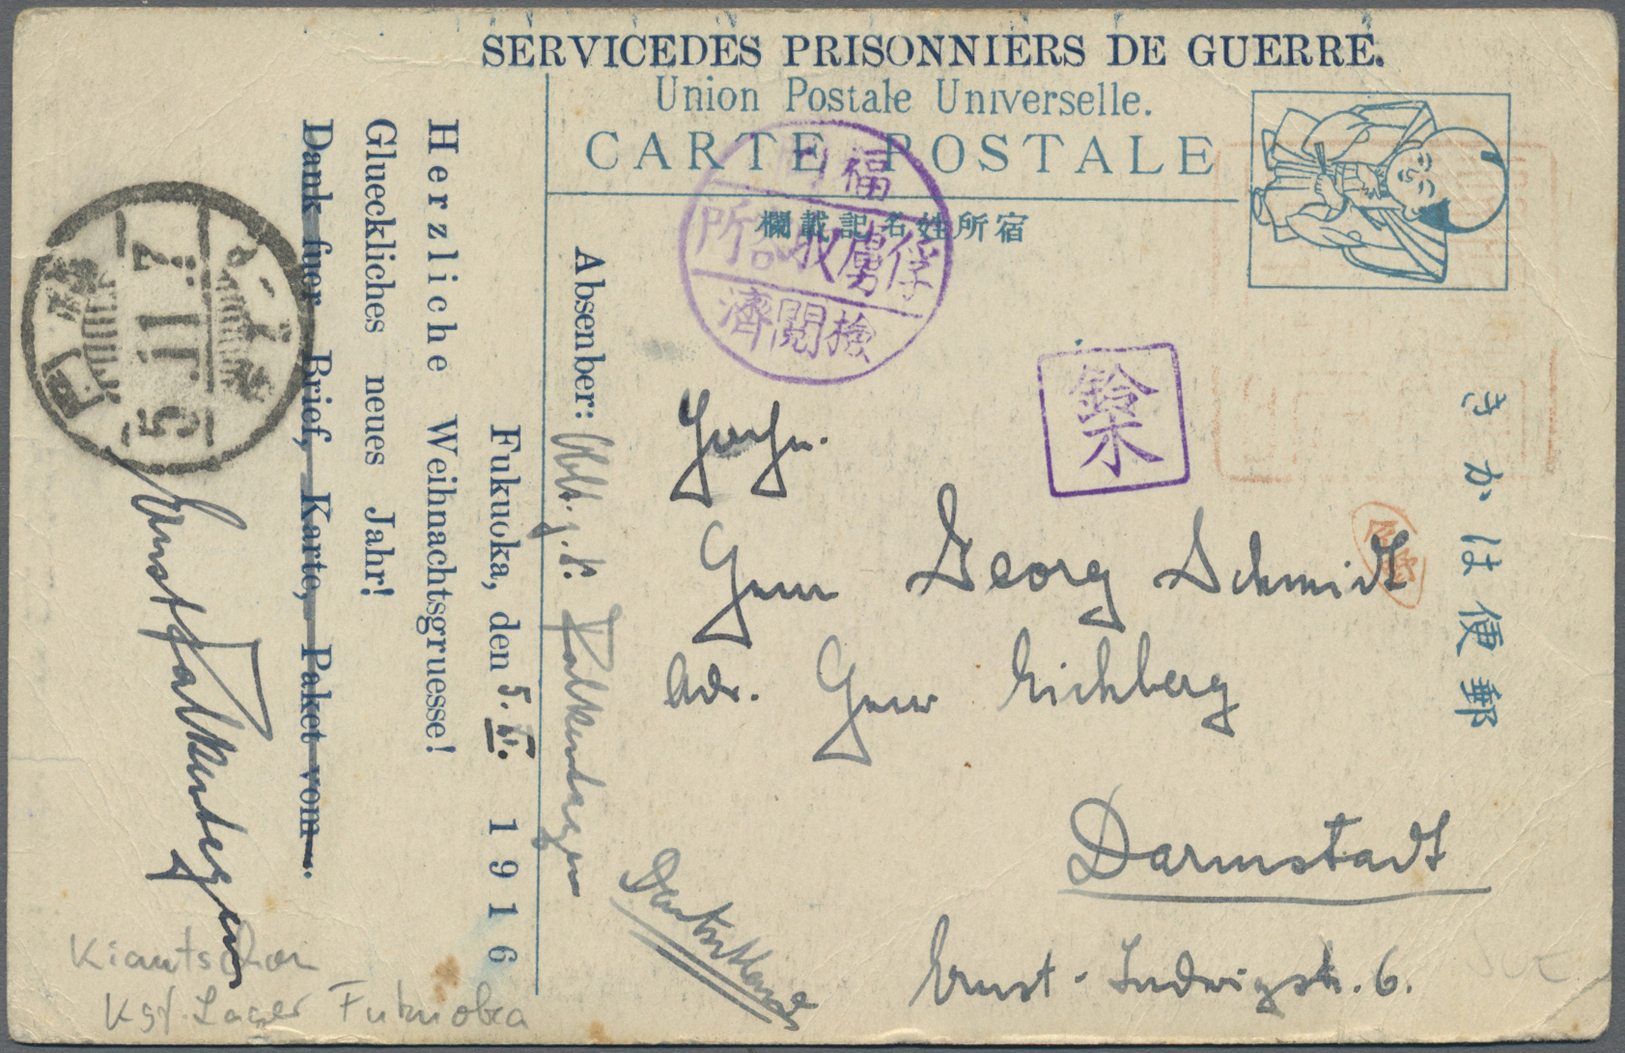 SERVICEDES PRISONNIERS DE GUERRE.
Union Postale Universelle.
CARTE POSTALE
欄載記名姓所宿
福岡
俘虜収容所
検閲済
鈴木
きかは便郵
Herrn
Georg Schmidt
Adr. Herrn Eichberg
Darmstadt
Ernst-Ludwigstr. 6.
Deutschland
Absenber: Oblt. z. S. Falkenhagen
Fukuoka, den 5. XI. 1916
Herzliche Weihnachtsgruesse!
Glueckliches neues Jahr!
Dank fuer Brief, Karte, Paket vom .
Ernst Falkenhagen
5.11.7
Kiautschou
Kgf. Lager Fukuoka